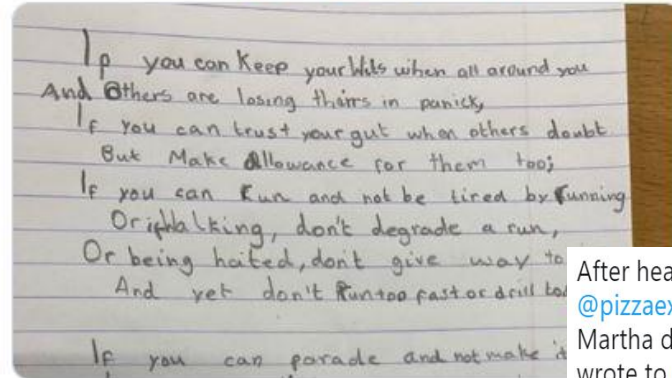 If you can keep your Wits when all around you
And Others are losing theirs in panick,
If you can trust your gut when others doubt
But Make Allowance for them too;
If you can run and not be tired by running
Or if Walking, don't degrade a run,
Or being haited, don't give way to
And yet don't Run too fast or drill too
If you can parade and not make it
After hea
@pizzaex
Martha d
wrote to